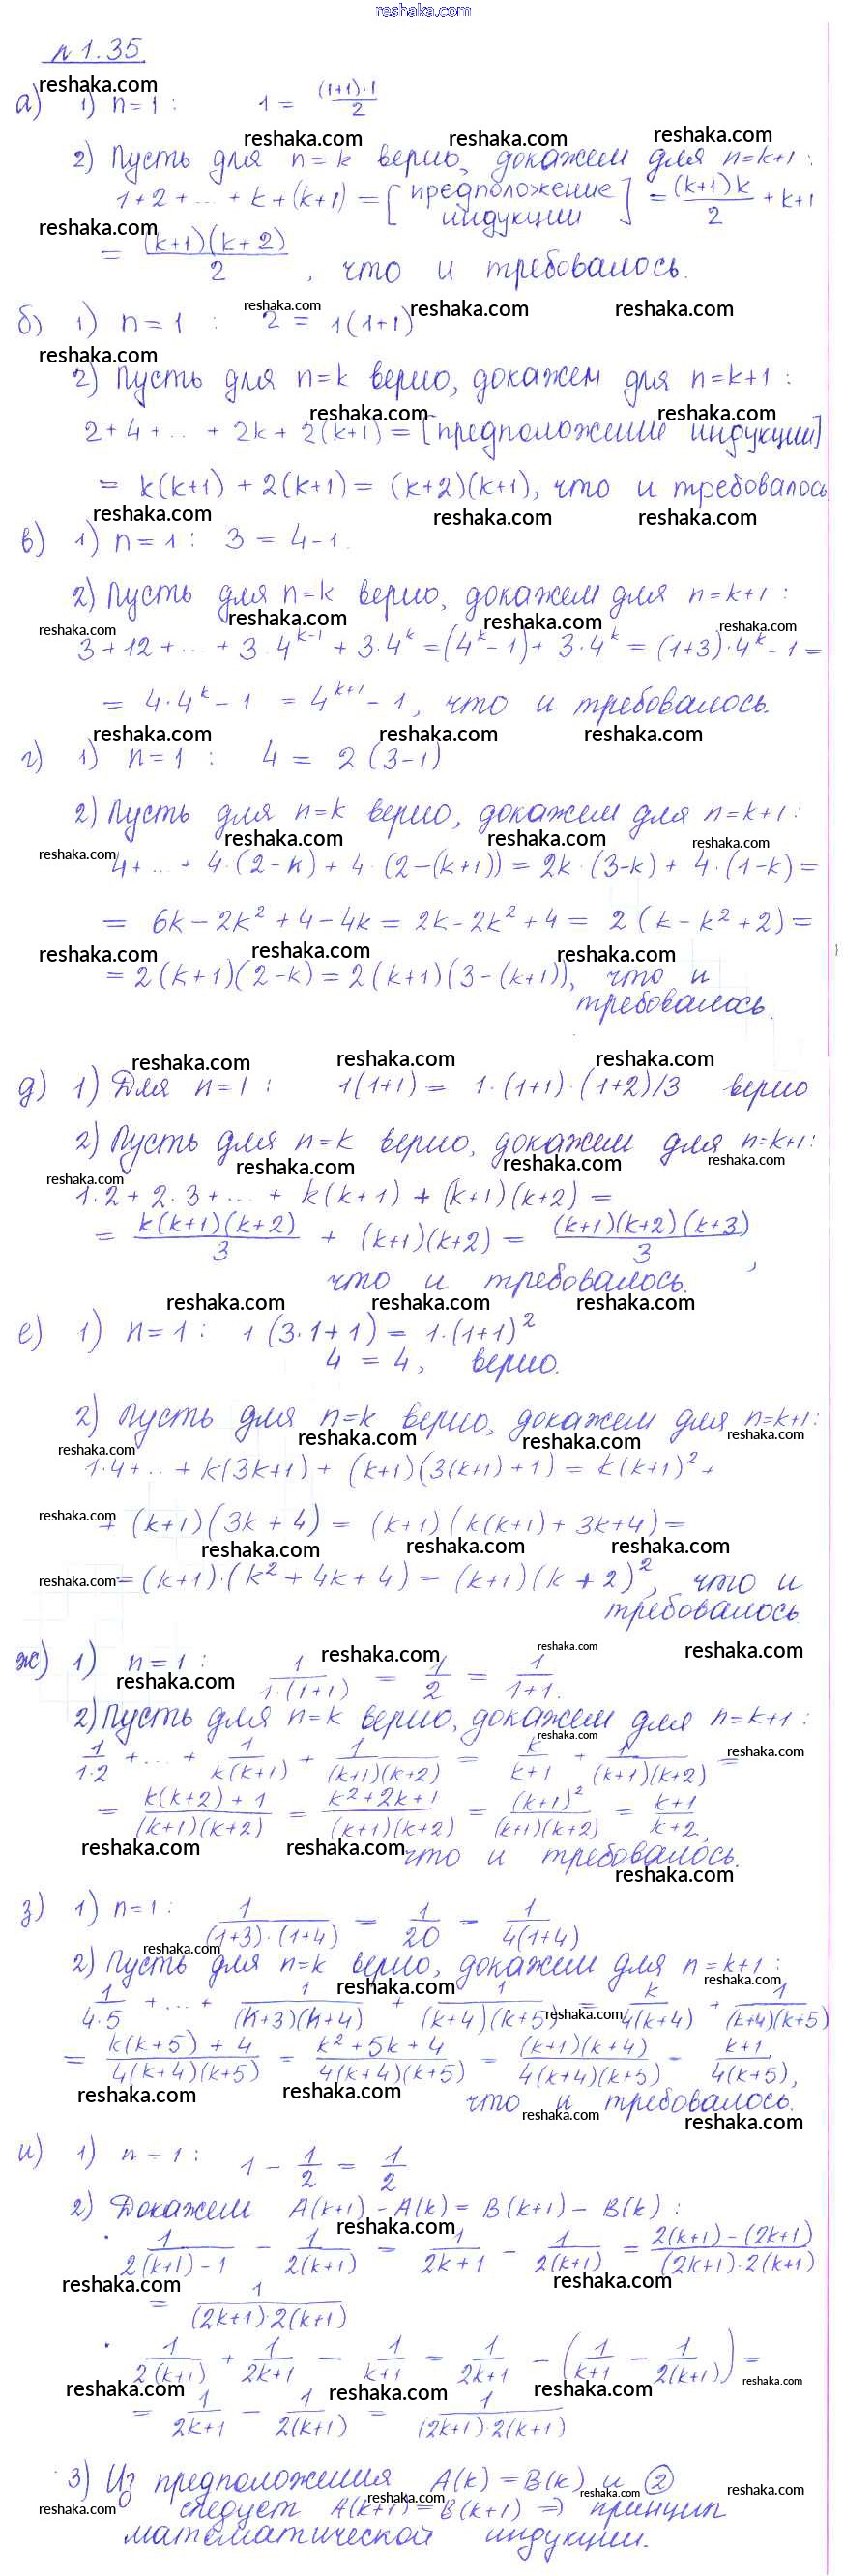 reshaka.com
n 1.35
reshaka.com
а) 1) n=1 : 1 = (1+1)·1/2
reshaka.com reshaka.com reshaka.com
2) Пусть для n=k верно, докажем для n=k+1 :
1+2+...+k+(k+1) = [предположение индукции] = (k+1)k/2 + k+1
reshaka.com
= (k+1)(k+2)/2 , что и требовалось.
reshaka.com reshaka.com reshaka.com
б) 1) n=1 : 2 = 1(1+1)
reshaka.com
2) Пусть для n=k верно, докажем для n=k+1 :
reshaka.com reshaka.com
2+4+...+2k+2(k+1) = [предположение индукции]
= k(k+1)+2(k+1) = (k+2)(k+1), что и требовалось
reshaka.com reshaka.com reshaka.com
в) 1) n=1 : 3 = 4-1.
2) Пусть для n=k верно, докажем для n=k+1 :
reshaka.com reshaka.com reshaka.com reshaka.com
3+12+...+3·4^(k-1)+3·4^k = (4^k-1)+3·4^k = (1+3)·4^k-1 =
= 4·4^k-1 = 4^(k+1)-1, что и требовалось.
reshaka.com reshaka.com reshaka.com
г) 1) n=1 : 4 = 2(3-1)
2) Пусть для n=k верно, докажем для n=k+1 :
reshaka.com reshaka.com reshaka.com reshaka.com
4+...+4·(2-k)+4·(2-(k+1)) = 2k·(3-k)+4·(1-k) =
= 6k-2k²+4-4k = 2k-2k²+4 = 2(k-k²+2) =
reshaka.com reshaka.com reshaka.com
= 2(k+1)(2-k) = 2(k+1)(3-(k+1)), что и
требовалось.
reshaka.com reshaka.com reshaka.com
д) 1) Для n=1 : 1(1+1) = 1·(1+1)·(1+2)/3 верно
2) Пусть для n=k верно, докажем для n=k+1:
reshaka.com reshaka.com reshaka.com reshaka.com
1·2+2·3+...+k(k+1)+(k+1)(k+2) =
= k(k+1)(k+2)/3 + (k+1)(k+2) = (k+1)(k+2)(k+3)/3 ,
что и требовалось.
reshaka.com reshaka.com reshaka.com
е) 1) n=1 : 1(3·1+1) = 1·(1+1)²
4 = 4, верно.
2) Пусть для n=k верно, докажем для n=k+1:
reshaka.com reshaka.com reshaka.com reshaka.com
1·4+...+k(3k+1)+(k+1)(3(k+1)+1) = k(k+1)²+
reshaka.com
+(k+1)(3k+4) = (k+1)(k(k+1)+3k+4) =
reshaka.com reshaka.com reshaka.com
reshaka.com
= (k+1)·(k²+4k+4) = (k+1)(k+2)², что и
требовалось
reshaka.com reshaka.com reshaka.com reshaka.com
ж) 1) n=1 : 1/(1·(1+1)) = 1/2 = 1/(1+1).
2) Пусть для n=k верно, докажем для n=k+1 :
reshaka.com reshaka.com
1/(1·2)+...+1/(k(k+1))+1/((k+1)(k+2)) = k/(k+1)+1/((k+1)(k+2)) =
= (k(k+2)+1)/((k+1)(k+2)) = (k²+2k+1)/((k+1)(k+2)) = (k+1)²/((k+1)(k+2)) = (k+1)/(k+2),
reshaka.com reshaka.com
что и требовалось.
reshaka.com
з) 1) n=1 : 1/((1+3)·(1+4)) = 1/20 = 1/(4(1+4))
reshaka.com
2) Пусть для n=k верно, докажем для n=k+1 :
reshaka.com reshaka.com reshaka.com
1/(4·5)+...+1/((k+3)(k+4))+1/((k+4)(k+5)) = k/(4(k+4))+1/((k+4)(k+5))
= (k(k+5)+4)/(4(k+4)(k+5)) = (k²+5k+4)/(4(k+4)(k+5)) = (k+1)(k+4)/(4(k+4)(k+5)) = (k+1)/(4(k+5)),
reshaka.com reshaka.com
что и требовалось.
reshaka.com reshaka.com
и) 1) n=1 : 1 - 1/2 = 1/2
2) Докажем A(k+1)-A(k) = B(k+1)-B(k) :
reshaka.com
· 1/(2(k+1)-1) - 1/(2(k+1)) = 1/(2k+1) - 1/(2(k+1)) = (2(k+1)-(2k+1))/((2k+1)·2(k+1))
reshaka.com reshaka.com
= 1/((2k+1)·2(k+1))
· 1/(2(k+1)) + 1/(2k+1) - 1/(k+1) = 1/(2k+1) - (1/(k+1) - 1/(2(k+1))) =
reshaka.com reshaka.com reshaka.com reshaka.com
= 1/(2k+1) - 1/(2(k+1)) = 1/((2k+1)·2(k+1))
3) Из предположения A(k)=B(k) и ②
reshaka.com reshaka.com reshaka.com reshaka.com
следует A(k+1)=B(k+1) => принцип
математической индукции.